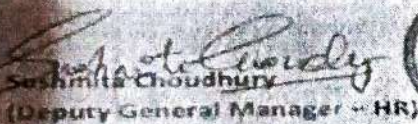 Sushmita Choudhury
(Deputy General Manager - HR)